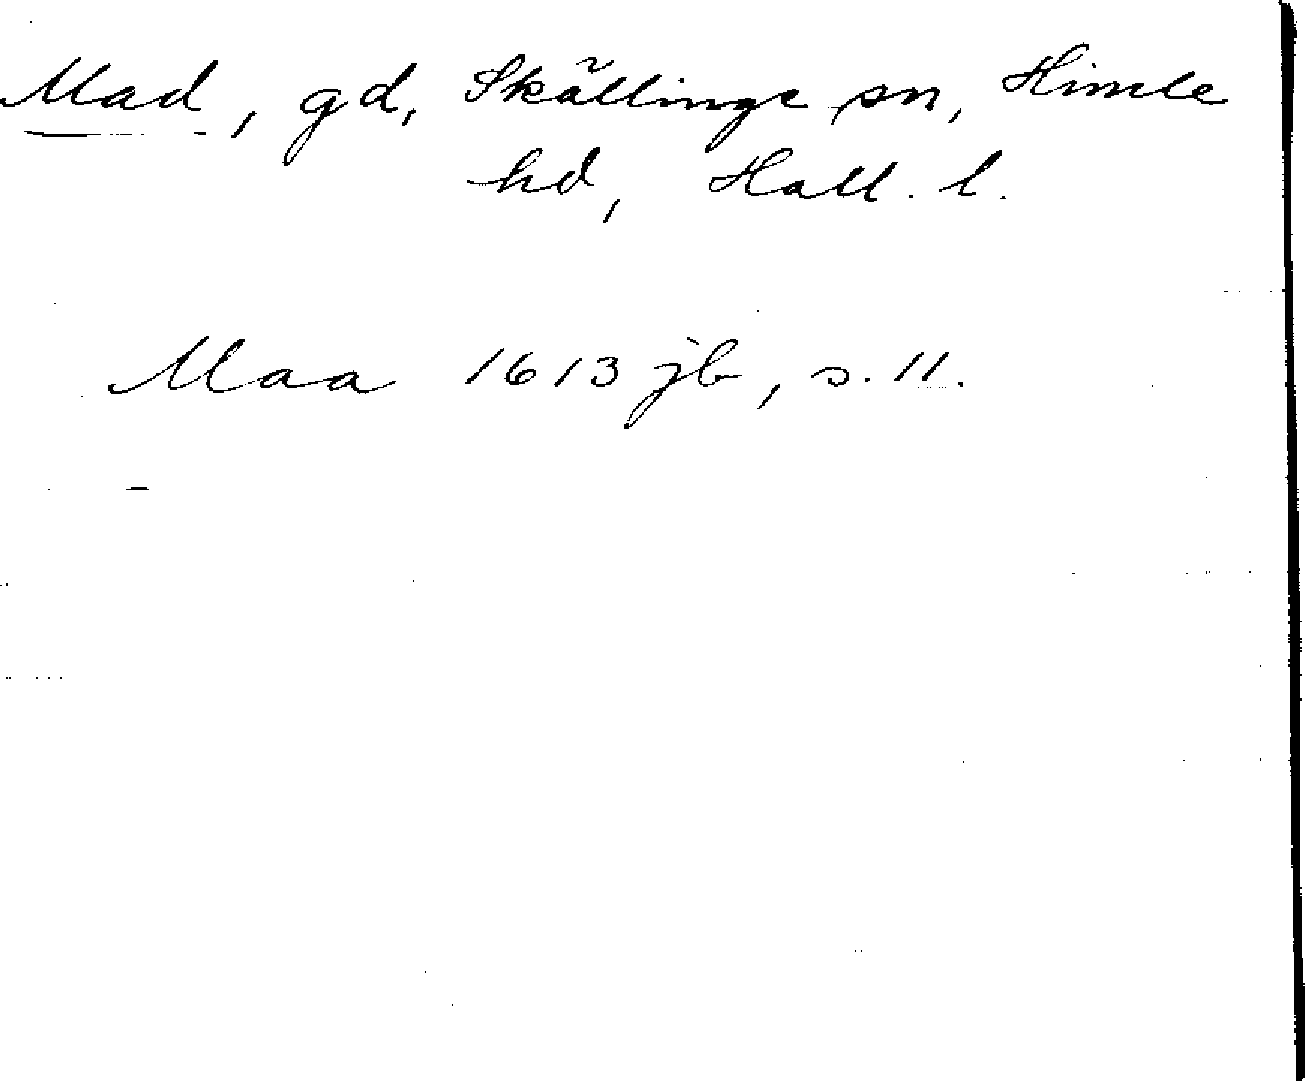 Mad, gd, Skällinge sn, Himle
hd, Hall. l.
Maa 1613 jb, s. 11.